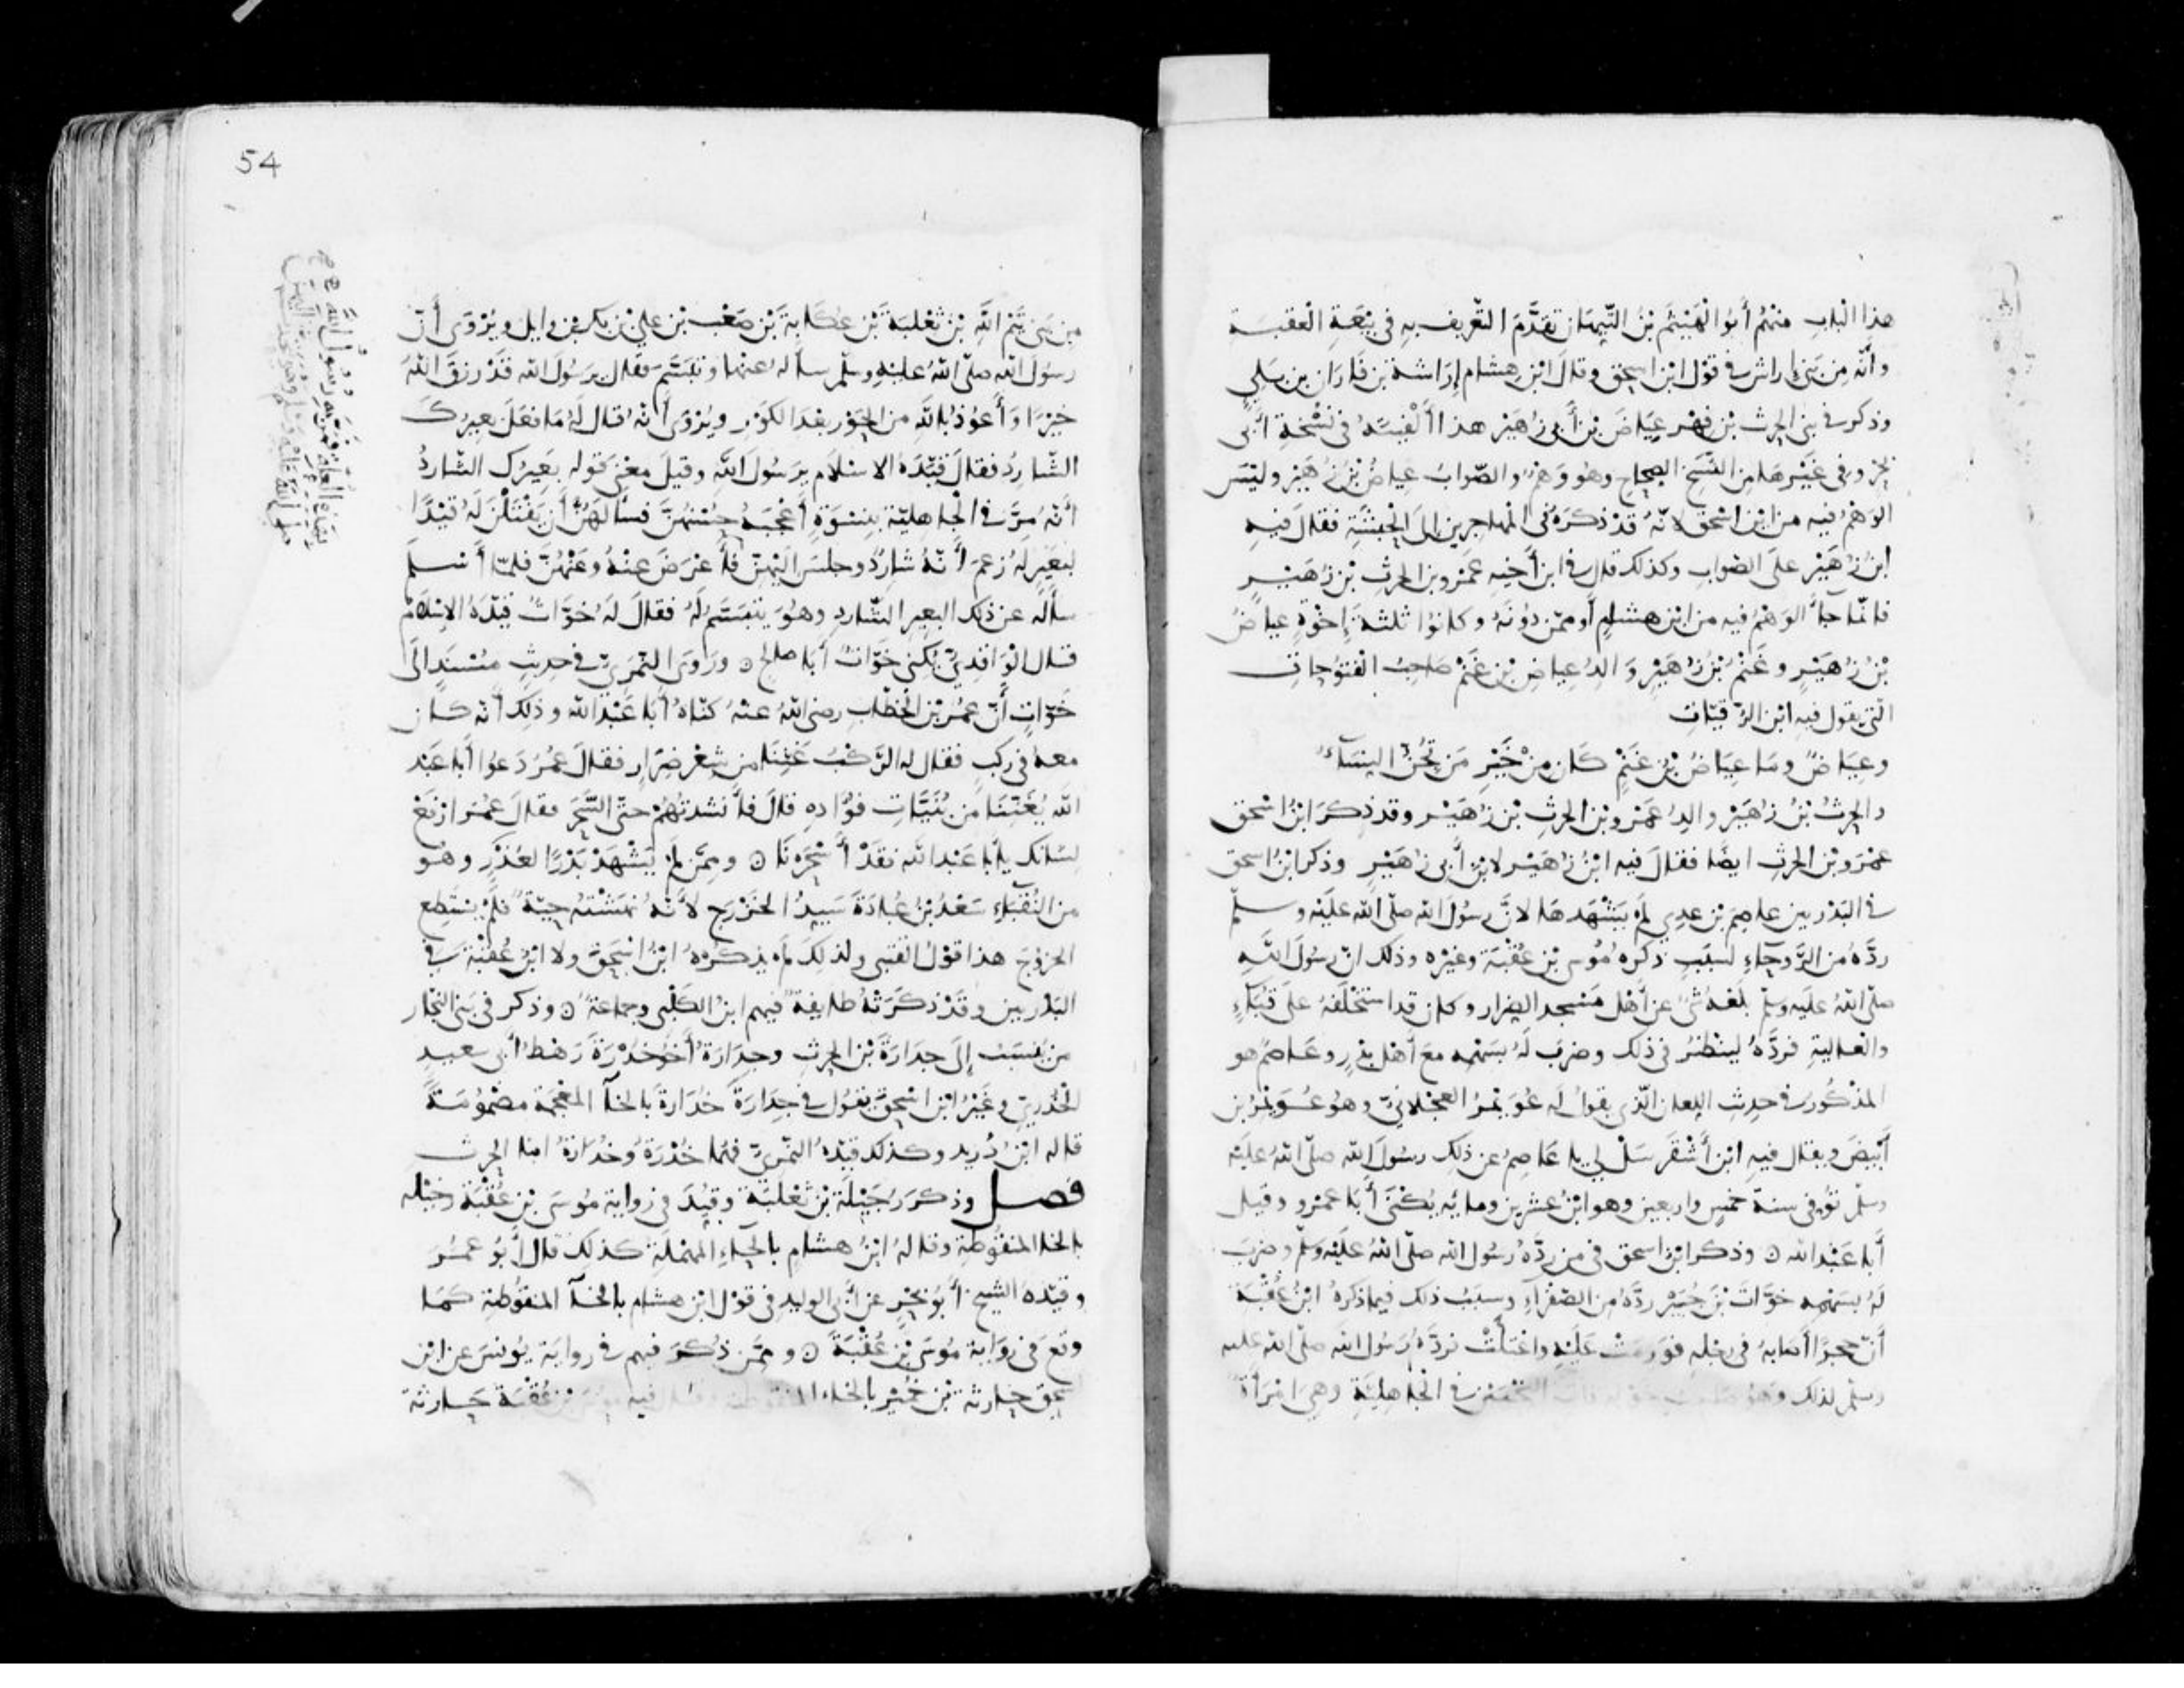 هذا الباب منهم أبو الهيثم بن التيهان تقدم التعريف به في بيعة العقبة
وأنه من بني إراش في قول ابن اسحق وقال ابن هشام إراشة بن فاران بن بلي
وذكر في بني الحرث بن فهر عياض بن أبي زهير هذا ألفيته في نسخة أبي
بحر وفي غيرها من النسخ الصحاح وهو وهم والصواب عياض بن زهير وليس
الوهم فيه من ابن اسحق لانه قد ذكره في المهاجرين إلى الحبشة فقال فيه
ابن زهير على الصواب وكذلك قال في ابن أخيه عمرو بن الحرث بن زهير
فانما جاء الوهم فيه من ابن هشام أو ممن دونه وكانوا ثلثة إخوة عياض
بن زهير وغنم بن زهير والد عياض بن غنم صاحب الفتوحات
التي يقول فيه ابن الرقيات
وعياض وما عياض بن غنم كان من خير من تجن النساء
والحرث بن زهير والد عمرو بن الحرث بن زهير وقد ذكر ابن اسحق
عمرو بن الحرث ايضا فقال فيه ابن زهير لا ابن أبي زهير وذكر ابن اسحق
في البدريين عاصم بن عدي لم يشهدها لان رسول الله صلى الله عليه وسلم
رده من الروحاء لسبب ذكره موسى بن عقبة وغيره وذلك ان رسول الله
صلى الله عليه وسلم بلغه شي عن أهل مسجد الضرار وكان قد استخلفه على قباء
والعالية فرده لينظر في ذلك وضرب له بسهمه مع أهل بدر وعاصم هو
المذكور في حديث اللعان الذي يقول له عويمر العجلاني وهو عويمر بن
أبيض ويقال فيه ابن أشقر سل لي يا عاصم عن ذلك رسول الله صلى الله عليه
وسلم توفي سنة خمس واربعين وهو ابن عشرين ومائة يكنى أبا عمرو وقيل
أبا عبد الله ه وذكر ابن اسحق في من رده رسول الله صلى الله عليه وسلم وضرب
له بسهمه خوات بن جبير رده من الصفراء وسبب ذلك فيما ذكره ابن عقبة
أن حجرا أصابه في رجله فورمت عليه واعتلت فرده رسول الله صلى الله عليه
وسلم لذلك وهو في الجاهلية وهي امرأة
54
من بني تيم الله بن ثعلبة بن عكابة بن صعب بن علي بن بكر بن وايل ويروى أن
رسول الله صلى الله عليه وسلم سأله عنها وتبسم فقال يرسول الله قد رزق الله
خيرا وأعوذ بالله من الحور بعد الكور ويروى أنه قال له ما فعل بعيرك
الشارد فقال قيده الاسلام يرسول الله وقيل معنى قوله بعيرك الشارد
أنه مر في الجاهلية بنسوة أعجبه حسنهن فسألهن أن يفتلن له قيدا
لبعير له زعم أنه شارد وجلس اليهن فأعرض عنه وعنهن فلما أسلم
سأله عن ذلك البعير الشارد وهو يتبسم له فقال له خوات قيده الإسلام
قال الواقدي يكنى خوات أبا صالح ه وروى النمري في حديث مسند إلى
خوات أن عمر بن الخطاب رضي الله عنه كناه أبا عبد الله وذلك أنه كان
معه في ركب فقال له الركب غننا من شعر ضرار فقال عمر دعوا أبا عبد
الله يغننا من بنيات فؤاده قال فأنشدتهم حتى السحر فقال عمر ارفع
لسانك يابا عبد الله فقد أسحرنا ه وممن لم يشهد بدرا لعذر وهو
من النقباء سعد بن عبادة سيد الخزرج لأنه نهشته حية فلم يستطع
الخروج هذا قول القتبي ولذلك لم يذكره ابن اسحق ولا ابن عقبة في
البدريين وقد ذكرته طايفة فيهم ابن الكلبي وجماعة ه وذكر في بني النجار
من ينسب إلى جدارة بن الحرث وجدارة أخو خدرة رهط أبي سعيد
الخدري وغير ابن اسحق يقول في جدارة خدارة بالخاء المعجمة مضمومة
قاله ابن دريد وكذلك قيده النمري فهما خدرة وخدارة ابنا الحرث
فصل وذكر رجيلة بن ثعلبة وقيد في رواية موسى بن عقبة رخيلة
بالخا المنقوطة وقاله ابن هشام بالحاء المهملة كذلك قال أبو عمر
وقيده الشيخ أبو بحر عن أبي الوليد في قول ابن هشام بالخاء المنقوطة كما
وقع في رواية موسى بن عقبة ه وممن ذكر فيهم في رواية يونس عن ابن
اسحق خارثة بن خمير بالخاء المنقوطة وقال فيه موسى بن عقبة حارثة